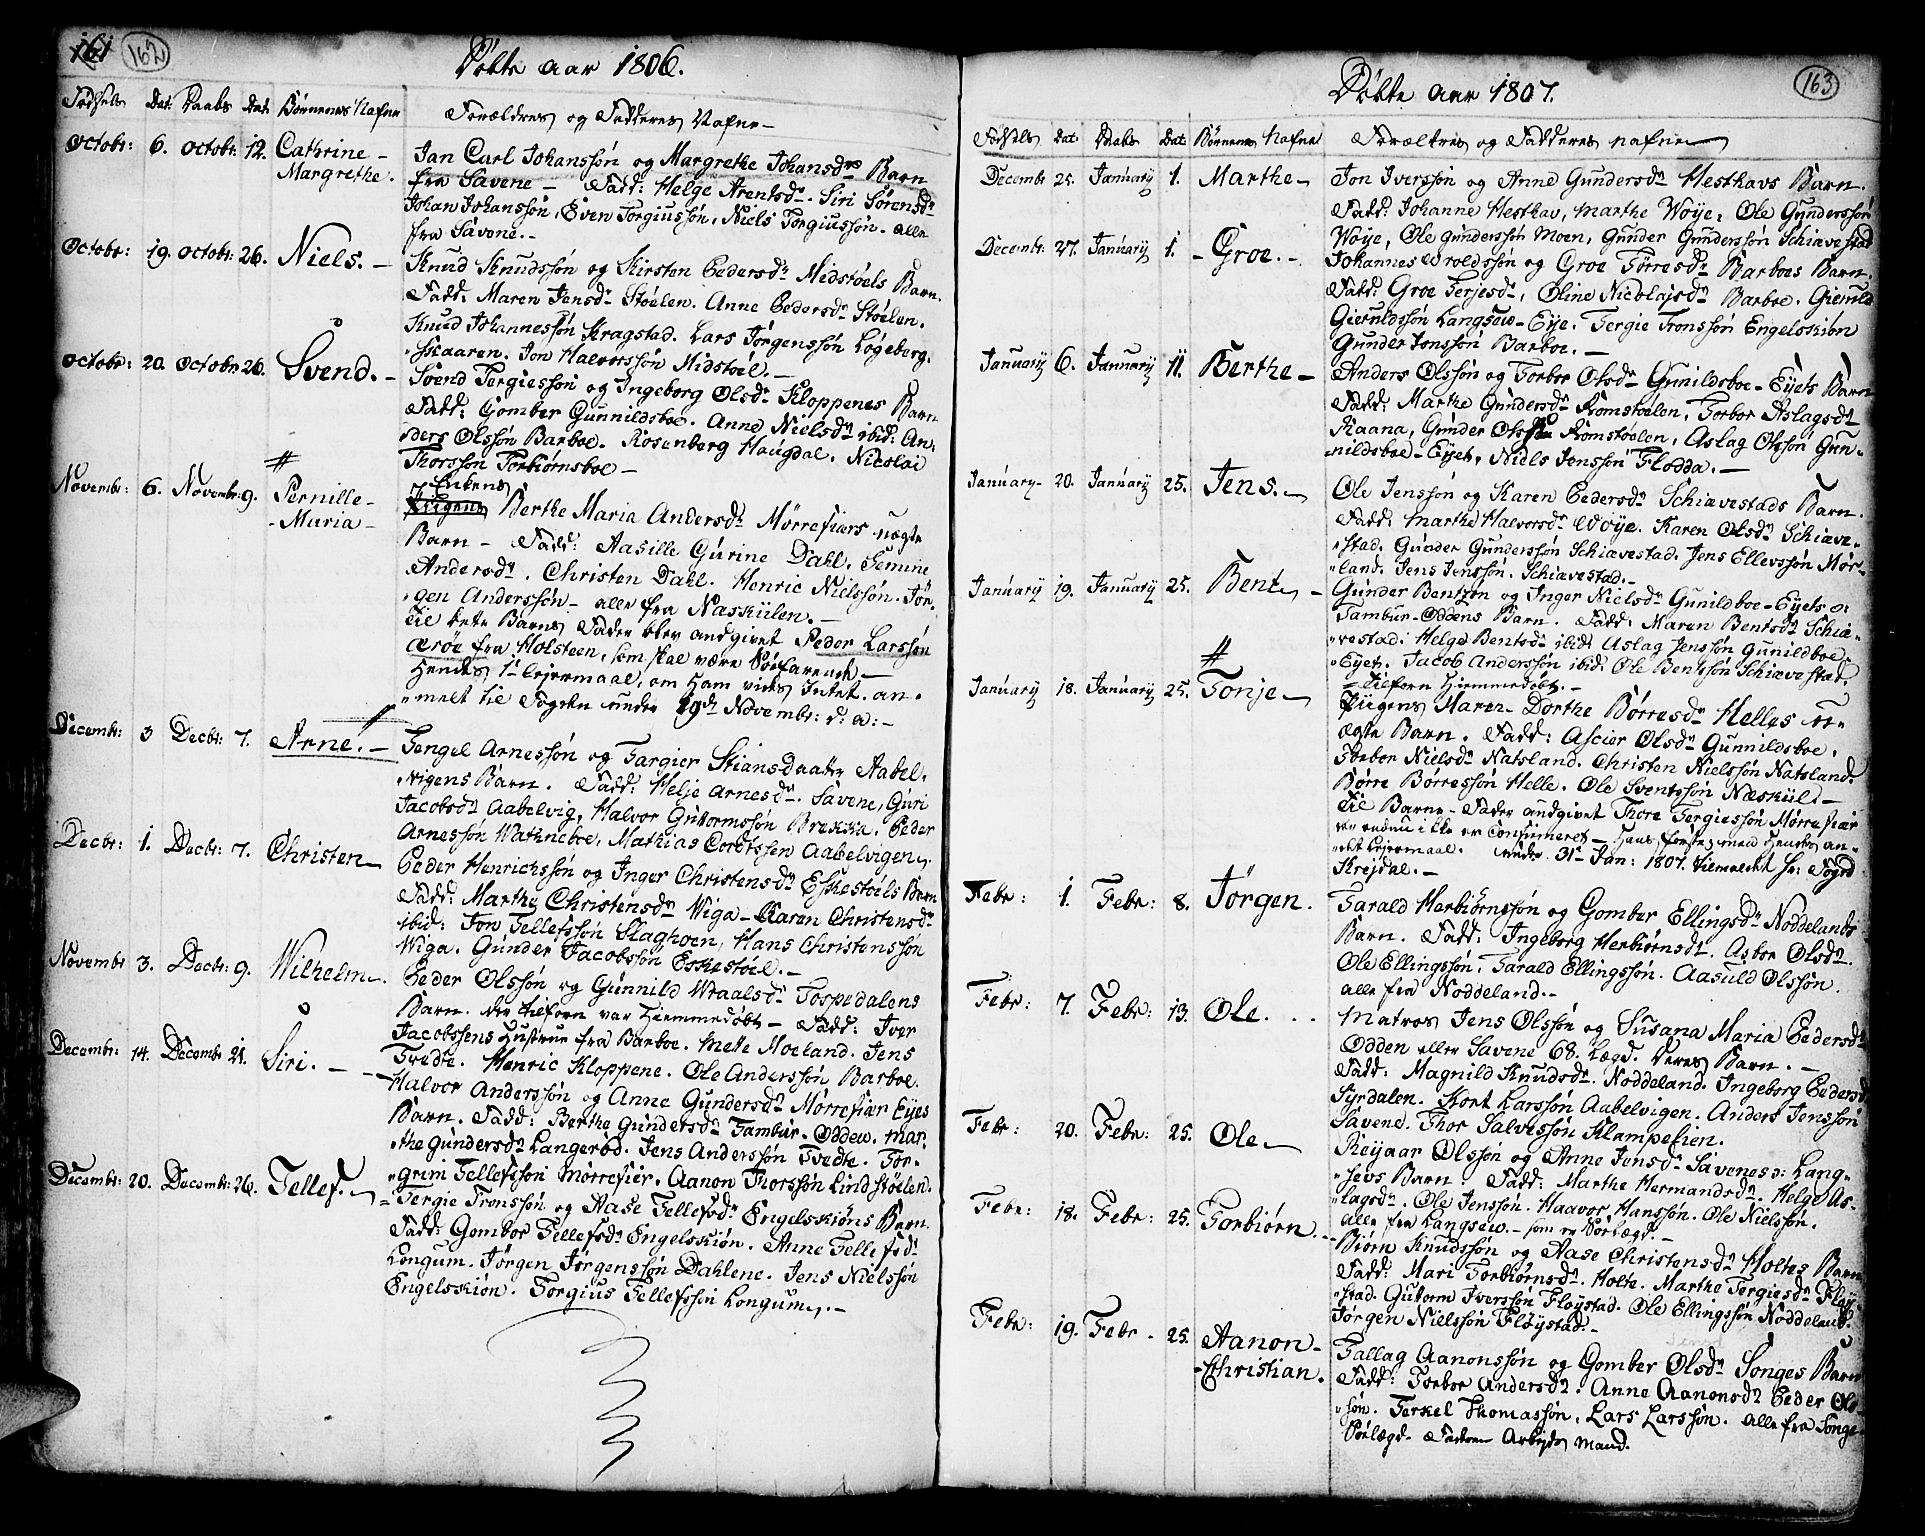 161 162
Døbte aar 1806.
Fødsels Dat. Daabs Dat. Børnenes Nafne Forældres og Fadderes Nafne
Octobr: 6. Octobr: 12. Cathrine Margrethe.
Jan Carl Johanssøn og Margrethe Johansdr Barn
fra Savene - Fadd: Helge Arentsdr. Siri Sørensdr
Johan Johanssøn, Even Torgiussøn, Niels Torgiussøn. alle
fra Savene.-
Octobr: 19. Octobr: 26. Niels.-
Knud Knudssøn og Kirsten Pedersdr Midstøels Barn.
Fadd: Maren Jensdr Støelen. Anne Pedersdr Støelen.
Knud Johannessøn Kragstad. Lars Jørgenssøn Løgeberg.
skaaren. Jon Halvorssøn Midstøel.-
Octobr: 20. Octobr: 26. Svend.-
Svend Tergiessøn og Ingeborg Olsdr Kloppenes Barn
Fadd: Gomber Gunnildsboe. Anne Nielsdr ibid: An-
ders Olssøn Barboe. Rosenberg Haugdal. Nicolai
Thorssøn Torbiørnsboe -
Novembr: 6. Novembr: 9. Pernille-
-Maria-
Enkens
Pigens Berthe Maria Andersdr Mørrefiærs uægte
Barn - Fadd: Aasille Gurine Dahl. Gemine
Andersdr. Christen Dahl. Henric Nielssøn. Jør-
gen Anderssøn - alle fra Naskilen.-
Til dette Barns Fader blev andgivet Peder Larssøn
Ærøe fra Holsteen, som skal være Søefarende-
Hendes 1ste Lejermaal, om Ham vides Intet. an-
meldt til Fogden under 19de Novembr: d: a:-
Decembr: 3 Decbr: 7. Arne.-
Tengel Arnessøn og Targier Stiansdaatter Aabel-
vigens Barn. Fadd: Helje Arnesdr. Savene, Guri
Jacobsdr Aabelvig, Halvor Gutormssøn Brekka. Peder
Arnessøn Wathneboe, Mathias Cordtssen Aabelvigen.
Decbr: 1. Decbr: 7. Christen-
Peder Henrichssøn og Inger Christensdr Eskestøels Barn
Fadd: Marthe Christensdr Wiga - Karen Christensdr
ibid: Jon Tellefssøn Slaghoen, Hans Christenssøn
Wiga. Gunder Jacobssøn Eskestøel.-
Novembr 3. Decbr: 9. Wilhelm.
Peder Olssøn og Gunnild Wraalsdr Tospedalens
Barn. der tilforn var Hiemmedøbt - Fadd: Iver
Jacobssens Hustrue fra Barboe. Mette Moeland. Jens
Tvedte. Henric Kloppene. Ole Anderssøn Barboe.
Decembr: 14. Decembr 21. Siri.-
Halvor Anderssøn og Anne Gundersdr Mørrefiær Eyes
Barn. Fadd: Berthe Gundersdr Tambur-Odden. Mar-
the Gundersdr Langerød. Jens Anderssøn Tvedte. Tor-
grim Tellefssøn Mørrefiær. Aanon Thorssøn Lindstøelen.
Decembr: 20. Decembr: 26. Tellef.-
Tergie Tronssøn og Aase Tellefsdr Engelskiøns Barn.
Fadd: Gombor Tellefsdr Engelskiøn. Anne Tellefsdr
Longum. Jørgen Jørgenssøn Dahlene. Jens Nielssøn
Engelskiøn. Torgius Tellefssøn Longum.-
163
Døbte aar 1807.
Fødsels Dat. Daabs Dat. Børnenes Nafne Forældres og Fadderes Nafne
Decembr 25. January 1. Marthe-
Jon Iverssøn og Anne Gundersdr Hesthavs Barn.
Fadd: Johanne Hesthav, Marthe Woye, Ole Gunderssøn
Woye, Ole Gunderssøn Moen, Gunder Gunderssøn Schiavestad
Decembr: 27. January 1. -Groe.-
Johannes Wroldssøn og Groe Tørresdr Barboes Barn.
Fadd: Groe Terjesdr, Oline Nicolajsdr Barboe. Gieruld
Gieruldssøn Langsew-Eye. Tergie Tronssøn Engelskiøn
Gunder Jonssøn Barboe.-
January 6. January 11. Berthe-
Anders Olssøn og Torbor Olsdr Gunildsboe-Eyets Barn
Fadd: Marthe Gundersdr Romstøelen, Torbor Aslagsdr
Kaana, Gunder Olssøn Romstøelen, Aslag Olssøn Gun-
nildsboe-Eyet, Niels Jenssøn Flodda.-
January- 20. January 25. Jens.-
Ole Jenssøn og Karen Pedersdr Schiavestads Barn.
Fadd: Marthe Halvorsdr Woye. Karen Olsdr Schiave-
stad. Gunder Gunderssøn Schiavestad. Jens Ellevssøn Mør-
land. Jens Jenssøn. Schiavestad.-
January 19. January 25. Bent-
Gunder Bentzøn og Inger Nielsdr Gunildboe-Eyets o:
Tambur-Oddens Barn. Fadd: Maren Bentsdr Schia-
vestad: Helge Bentsdr ibid: Aslag Jenssøn Gunildboe-
Eyet. Jacob Anderssøn ibid: Ole Bentssøn Schiavestad.
- tilforn Hiemmedøbt.-
January 18. January 25. Tonje-
Pigens Maren Dorthe Børresdr Helles u-
ægte Barn. Fadd: Ascier Olsdr Gunnildsboe.
Torbor Nielsdr Natsland. Christen Nielssøn Natsland.
Børre Børressøn Helle. Ole Sventssøn Næskiil-
Til Barne-Fader andgivet Thore Tergiessøn Mørrefiær
endnu ikke er Confirmeret - Hans første, men Hendes an-
det Lejermaal. under 31te Jan: 1807. tilmeldt Hr: Fogd
Krejdal.-
Febr: 1. Febr: 8. Jørgen.
Tarald Herbiørnssøn og Gomber Ellingsdr Noddelands
Barn. Fadd: Ingeborg Herbiørnsdr. Asbor Olsdr.
Ole Ellingssøn. Tarald Ellingssøn. Aasuld Olssøn.
alle fra Noddeland.-
Febr: 7. Febr: 13. Ole.
Matros Jens Olssøn og Susana Maria Pedersdr
Odden eller Savene 68. Lægd. Deres Barn.-
Fadd: Magnild Knudsdr. Noddeland. Ingeborg Pedersdr
Fyrdalen. Kort Larssøn Aabelvigen. Anders Jenssøn
Savene. Thor Salvessøn Klampefien.
Febr: 20. Febr: 25. Ole-
Reyaar Olssøn og Anne Jensdr Savenes o: Lang-
sevs Barn. Fadd: Marthe Hermandsdr. Helge As-
lagsdr. Ole Jenssøn. Haavor Hanssøn. Ole Nielssøn.
alle fra Langsew.- som er Søelægd.-
Febr: 18. Febr: 25. Torbiørn.-
Biørn Knudssøn og Aase Christensdr Holtes Barn.
Fadd: Mari Torbiørnsdr. Holte. Marthe Tergiesdr Fløy-
stad. Gutorm Iverssøn Fløystad. Ole Ellingssøn Noddeland.
Jørgen Nielssøn Fløystad.-
Febr: 19. Febr- 25. Aanon-
-Christian.
Tallag Aanonssøn og Gomber Olsdr Songes Barn
Fadd: Torbor Andersdr. Anne Aanonsdr Peder Ols-
søn. Terkel Thomassøn, Lars Larssøn. alle fra Songe-
Søelægd. Faderen Arbejds Mand.